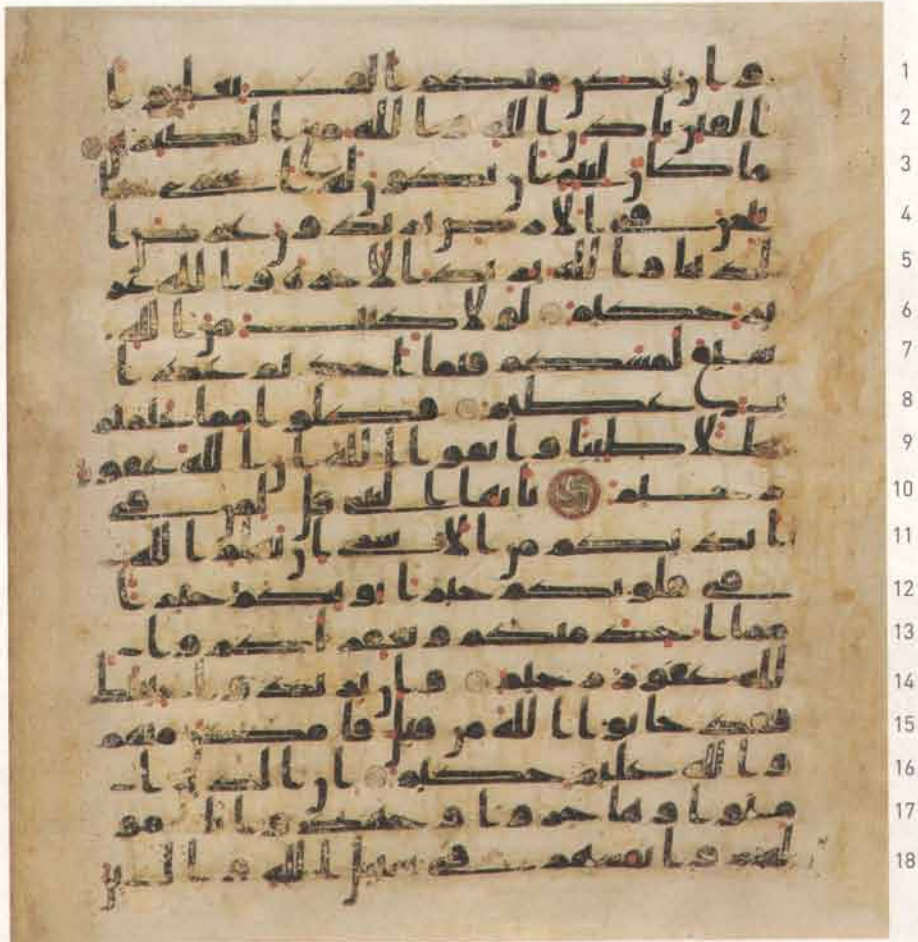 وان يكن منكم الف يغلبوا ا 1
لفين باذن الله والله مع الصبرين 2
ما كان لنبي ان يكون له اسرى حتى 3
يثخن في الارض تريدون عرض ا 4
لدنيا والله يريد الاخرة والله عز 5
يز حكيم لولا كتب من الله 6
سبق لمسكم فيما اخذتم عذا 7
ب عظيم فكلوا مما غنمتم 8
حللا طيبا واتقوا الله ان الله غفو 9
ر رحيم يايها النبي قل لمن في 10
ايديكم من الاسرى ان يعلم الله 11
في قلوبكم خيرا يوتكم خيرا 12
مما اخذ منكم ويغفر لكم وا 13
لله غفور رحيم وان يريدوا خيانتك 14
فقد خانوا الله من قبل فامكن منهم 15
والله عليم حكيم ان الذين ا 16
منوا وهاجروا وجهدوا بامو 17
لهم وانفسهم في سبيل الله والذين 18